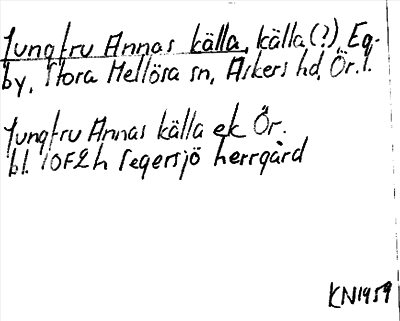 Jungfru Annas källa, källa (?), Eg-
by, Stora Mellösa sn, Askers hd, Ör. l.
Jungfru Annas källa ek Ör.
bl. 10F2h Segersjö herrgård
KN1959